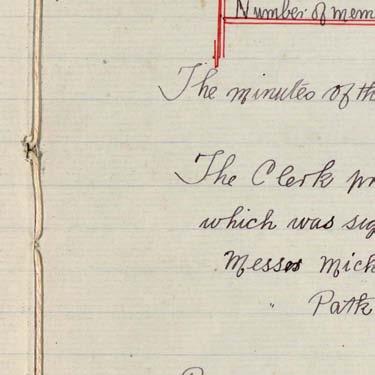 Number of mem
The minutes of th
The Clerk pr
which was sig
Messrs Mick
" Patk